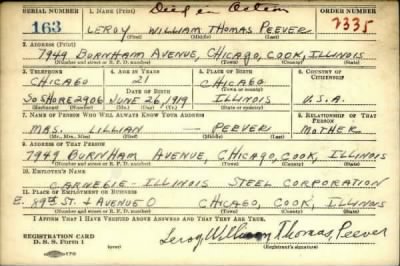 SERIAL NUMBER 1. NAME (Print) Died in Action ORDER NUMBER
163 LEROY WILLIAM THOMAS PEEVER 2335
(First) (Middle) (Last)
2. ADDRESS (Print)
7949 BURNHAM AVENUE, CHICAGO, COOK, ILLINOIS
(Number and street or R. F. D. number) (Town) (County) (State)
3. TELEPHONE 4. AGE IN YEARS 5. PLACE OF BIRTH 6. COUNTRY OF CITIZENSHIP
CHICAGO 21 CHICAGO
DATE OF BIRTH (Town or county)
SO SHORE 2906 JUNE 26, 1919 ILLINOIS U.S.A.
(Exchange) (Number) (Mo.) (Day) (Yr.) (State or country)
7. NAME OF PERSON WHO WILL ALWAYS KNOW YOUR ADDRESS 8. RELATIONSHIP OF THAT PERSON
MRS. LILLIAN — PEEVER MOTHER
(Mr., Mrs., Miss) (First) (Middle) (Last)
9. ADDRESS OF THAT PERSON
7949 BURNHAM AVENUE, CHICAGO, COOK, ILLINOIS
(Number and street or R. F. D. number) (Town) (County) (State)
10. EMPLOYER'S NAME
CARNEGIE ILLINOIS STEEL CORPORATION
11. PLACE OF EMPLOYMENT OR BUSINESS
E. 89TH ST. & AVENUE O CHICAGO, COOK, ILLINOIS
(Number and street or R. F. D. number) (Town) (County) (State)
I AFFIRM THAT I HAVE VERIFIED ABOVE ANSWERS AND THAT THEY ARE TRUE.
REGISTRATION CARD
D. S. S. Form 1 Leroy William Thomas Peever
(Registrant's signature)